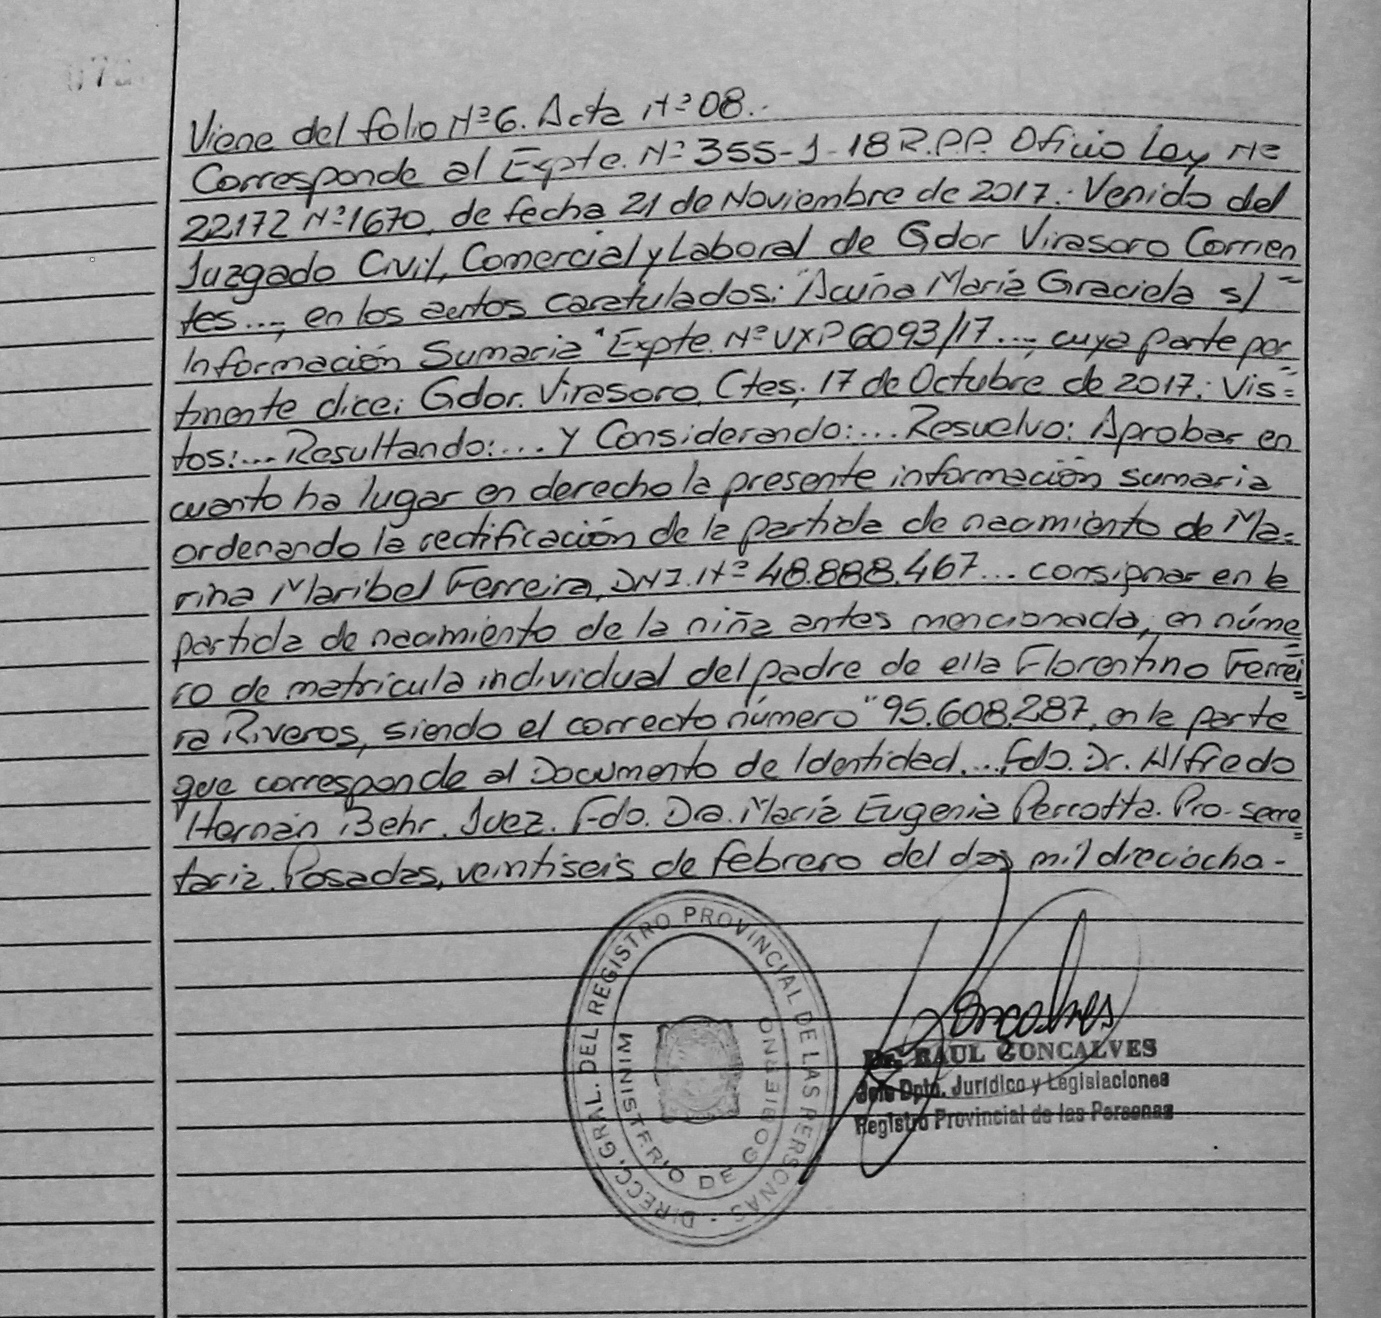 072
Viene del folio Nº6. Acta Nº08.-
Corresponde al Expte. Nº355-J-18 R.P.P. Oficio Ley Nº
22172 Nº1670, de fecha 21 de Noviembre de 2017. Venido del
Juzgado Civil, Comercial y Laboral de Gdor Virasoro Corrien
tes..., en los autos caratulados: "Acuña María Graciela s/
Información Sumaria" Expte. Nº VXP 6093/17..., cuya parte per
tinente dice: Gdor. Virasoro, Ctes, 17 de Octubre de 2017: Vis=
tos:... Resultando:... Y Considerando:... Resuelvo: Aprobar en
cuanto ha lugar en derecho la presente información sumaria
ordenando la rectificación de la partida de nacimiento de Ma=
rina Maribel Ferreira, DNI. Nº 48.888.467... consignar en la
partida de nacimiento de la niña antes mencionada, en núme
ro de matricula individual del padre de ella Florentino Ferrei
ra Riveros, siendo el correcto número "95.608.287, en la parte
que corresponde al Documento de Identidad.... Fdo. Dr. Alfredo
Hernán Behr. Juez. Fdo. Dra. María Eugenia Percotta. Pro-secre
taria. Posadas, veintiseis de febrero del dos mil dieciocho-
DIRECC. GRAL. DEL REGISTRO PROVINCIAL DE LAS PERSONAS -
MINISTERIO DE GOBIERNO
Goncalves
Dr. RAUL GONCALVES
Jefe Dpto. Jurídico y Legislaciones
Registro Provincial de las Personas